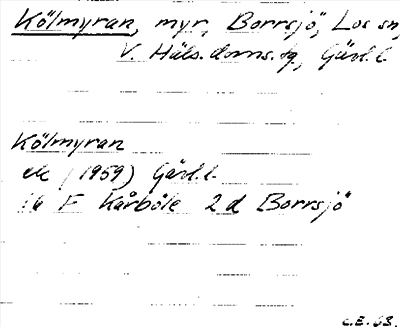 Kölmyran, myr, Borrsjö, Los sn,
V. Häls. doms. tg, Gävl. l.
Kölmyran
ek (1959) Gävl. l.
16 F Kårböle 2 d Borrsjö
C.E. 63.